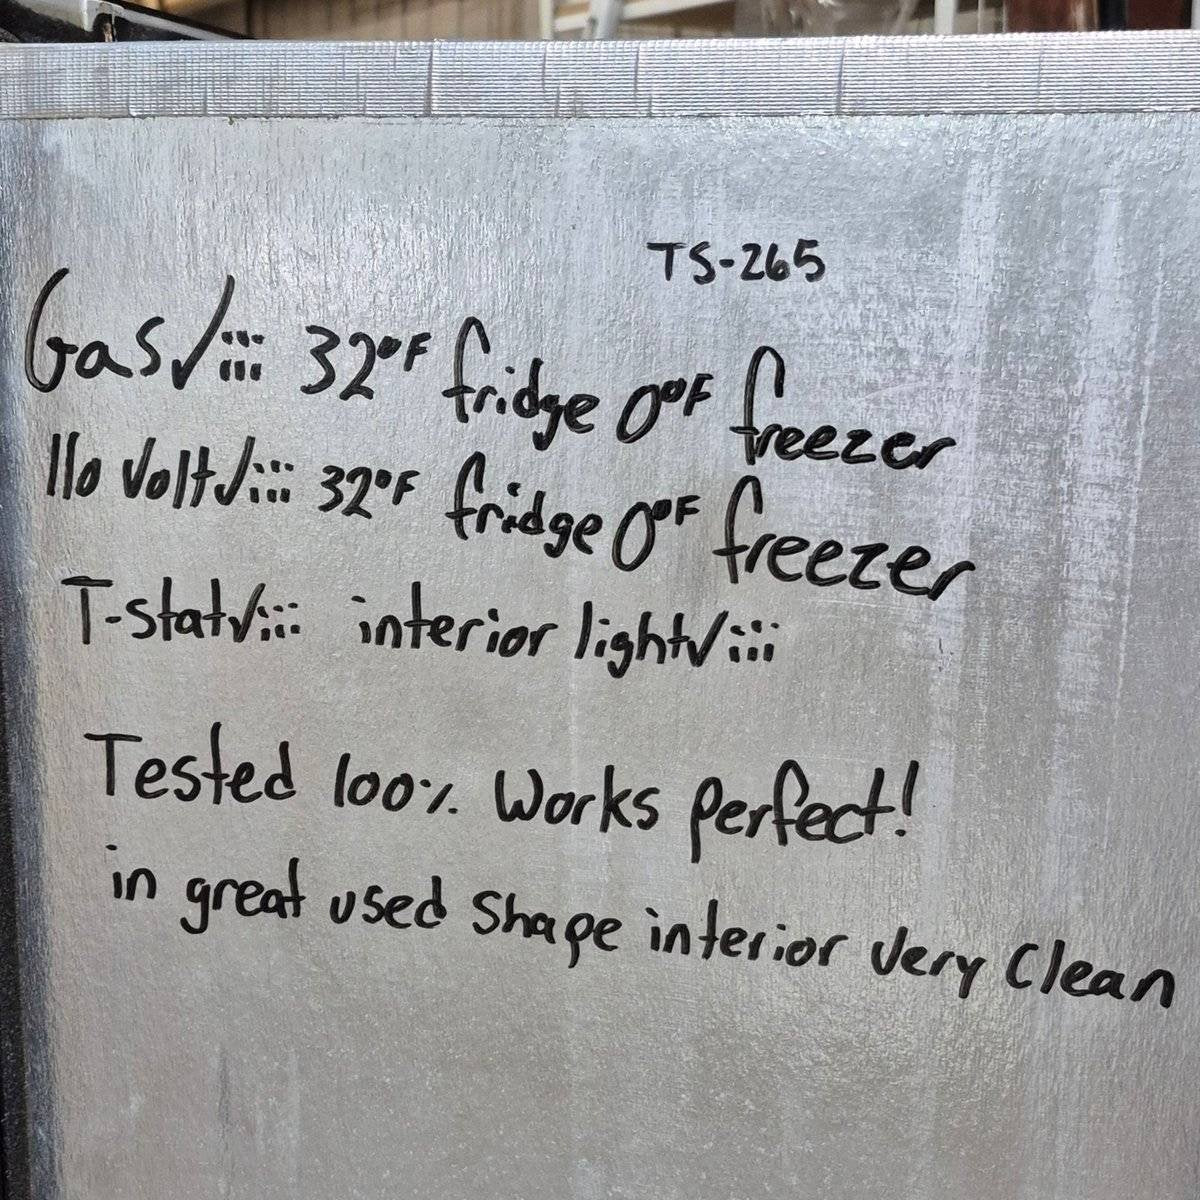 TS-265
Gas√::: 32°F fridge 0°F freezer
110 Volt√::: 32°F fridge 0°F freezer
T-stat√::: interior light√:::
Tested 100% Works perfect!
in great used Shape interior Very Clean